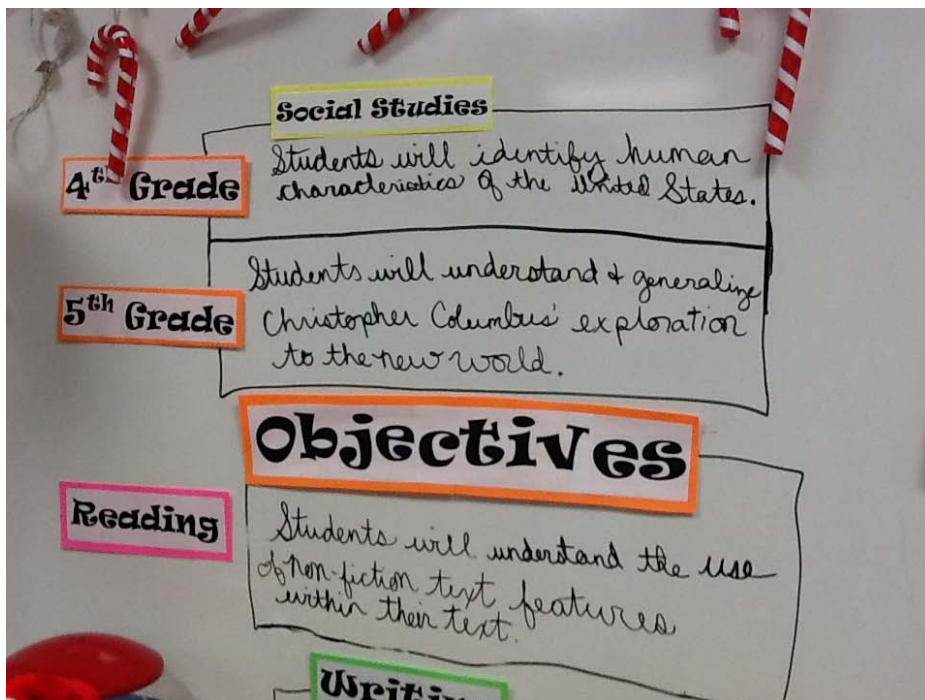 Social Studies
4th Grade
Students will identify human
characteristics of the United States.
5th Grade
Students will understand + generalize
Christopher Columbus' exploration
to the new world.
Objectives
Reading
Students will understand the use
of non-fiction text features
within their text.